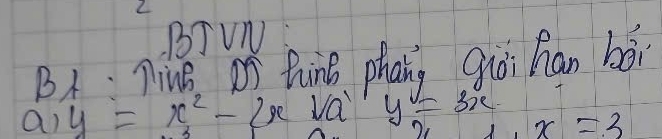 BTVN:
B1: Tính DT hình phẳng giới hạn bởi
a, y = x² - 2x và y = 3x
x = 3